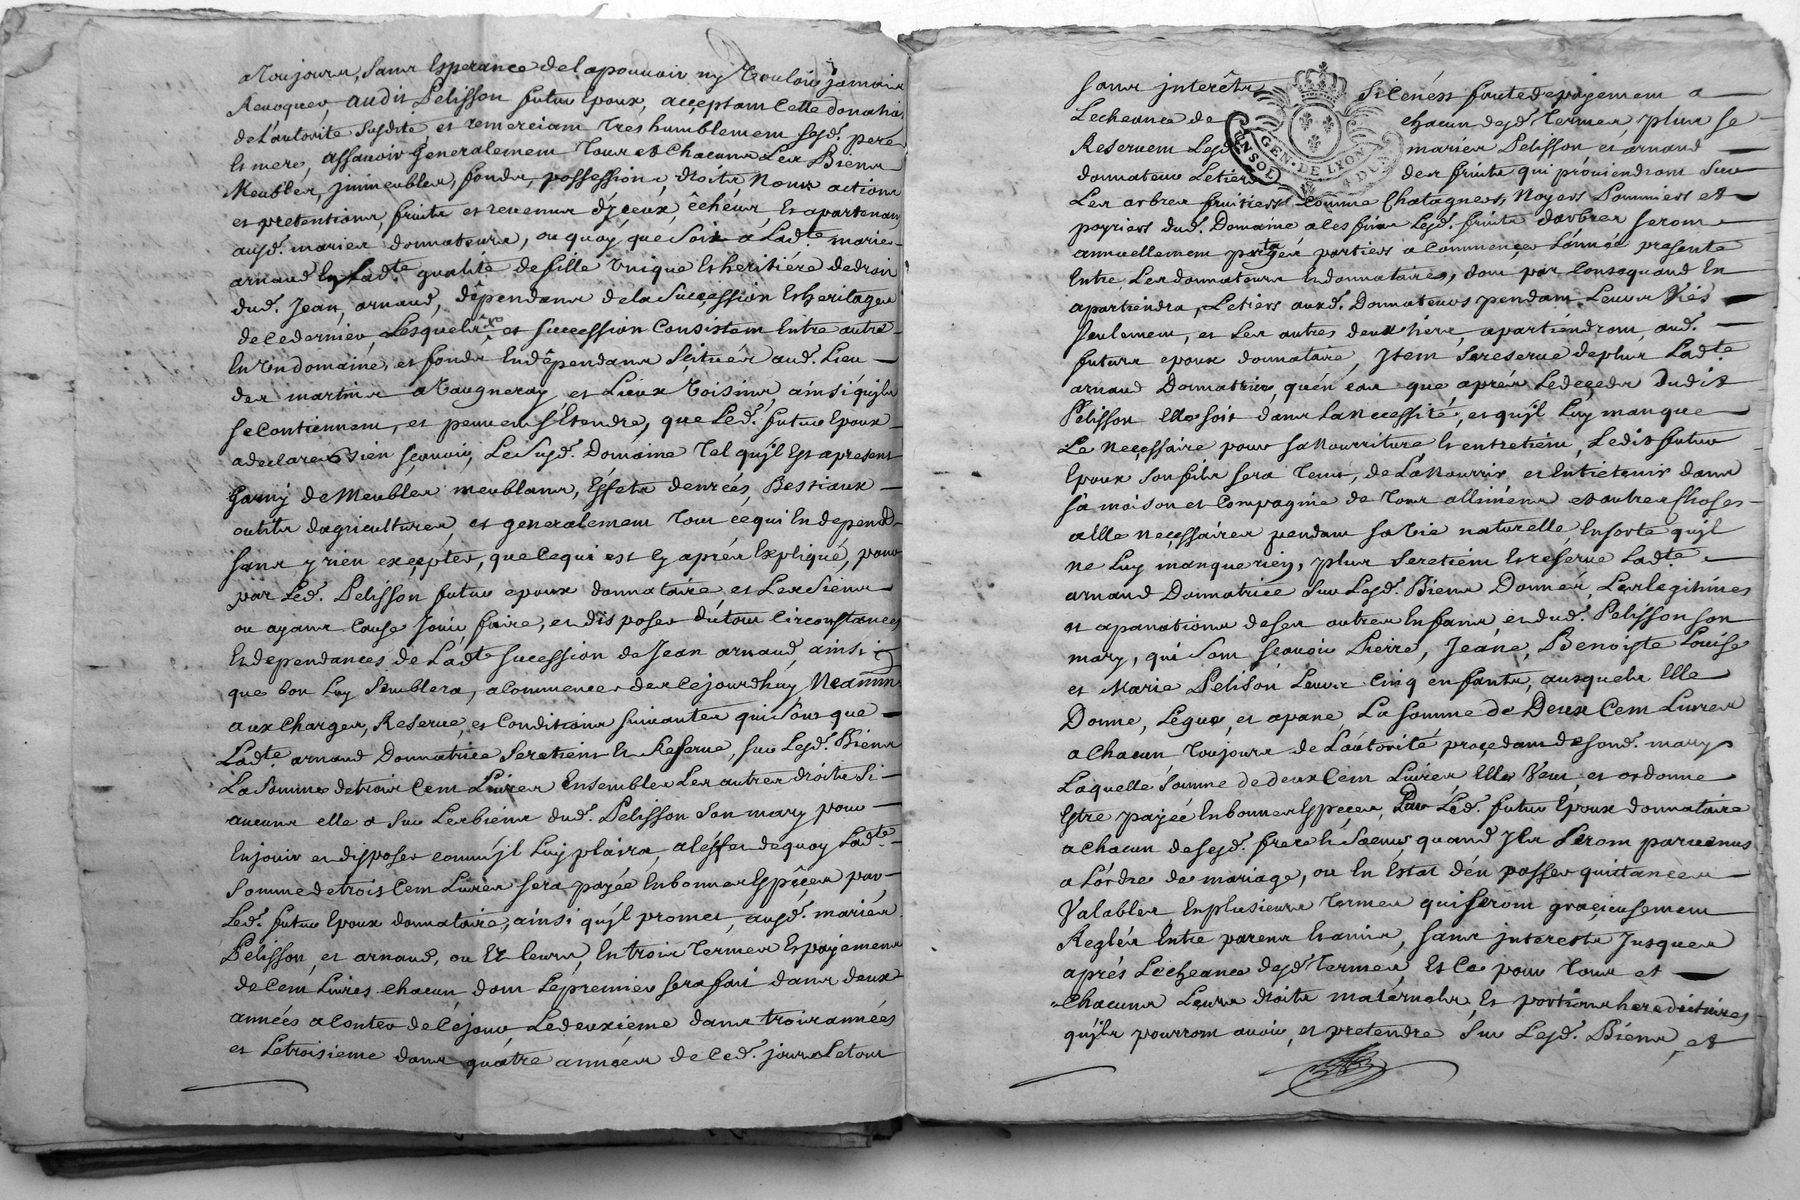 atoujours, sans Esperance de la pouvoir ny Vouloir jamais
Revoquer, audit Pelisson futur Epoux, acceptant cette donation
de Lautorité susdite et remerciant tres humblement sesd. pere
Et mere, assavoir Generalement Tous et Chacuns Les Biens
Meubles, jmmeubles, fonds, possessions, droits Noms actions
et pretentions, fruits et revenus d'yceux, êchéus, Et apartenans
ausd. mariés donnateurs, ou quoy que soit a Ladte. marie
arnaud En Ladte qualité de fille Vnique Et heritiére de droit
dud. Jean arnaud, dépendans de la Succession Et heritage
de ce dernier, Lesquels et succession Consistent Entre autre
En Vn domaine, et fonds En dépendans Scitués aud. Lieu
des martins a Vaugneray et Lieux Voisins, ainsi quils
se Contiennent, et peuvent s'Etendre, que Led. futur Epoux
a declaré Bien sçavoir, Le Susd. Domaine Tel qu'jl Est apresent
Garny de Meubles meublans, Effets denrées, Bestiaux
outils dagriculture, et generalement tout ce qui En depend
sans y rien excepter, que ce qui est Cy aprés Expliqué, pour
par Led. Pelisson futur epoux donnataire et Les Siens
ou ayans Cause Jouir, faire, et disposer du tout circonstances
Et dependances de Ladte sucession de Jean arnaud, ainsi
que bon Luy Semblera, a Commencer des Cejourdhuy Neamm.
aux Charges, Reserve, et Conditions suivantes qui Sont que
Ladte. arnaud Donnatrice se retient Et Reserve, sur Lesd. Biens
La Somme de trois Cent Livres Ensembles Les autres droits si
aucuns elle a Sur Les biens dud. Pelisson son mary pour
En jouir et disposer comm'jl Luy plaira, a leffet de quoy Ladte.
Somme de trois Cent Livres sera payée En bonnes Espêces par
Led. futur Epoux donnataire, ainsi qu'jl promet, ausd. mariés
Pelisson, et arnaud, ou Et Leurs, En trois Termes Et payemens
de Cent Livres chacun, dont Le premier sera fait dans deux
années a Conter de Cejour, Le deuxiéme dans trois années
et Le troisieme dans quatre années de Ced. jour, Le tout
sans interêts Si Cén'est faute de payement a
Lecheance de chacun desd. Termes, plus se
Reservent Lesd. mariés Pelisson, et arnaud
donnateurs Le tiers des fruits qui proviendront Sur
Les arbres fruitiers Comme Chatagners, Noyers Pommiers et
poyriers dud. Domaine a les fins Lesd. fruits d'arbres seront
annuellement partagés a Commencer L'année presente
Entre Les donnateurs Et donnataires, dont par Consequand En
apartiendra, Le tiers auxd. Donnateurs pendant Leurs Viés
seulement, et Les autres deux tiers, apartiéndront, aud.
futurs epoux donnataire, Jtem Se reserve de plus Ladte
arnaud Donnatrice, qu'én cas que aprés Le deçeds Dudit
Pelisson elle soit dans La Necessité, et qu'jl Luy manque
Le Neçessaire pour sa Nourriture Et entretien, Ledit futur
Epoux Son fils sera Tenu, de La Nourrir, et Entretenir dans
sa maison et Compagnie de Tous allimens et autres Choses
a Elle necessaires pendant sa Vie naturelle, En sorte qu'jl
ne Luy manque rien, plus Se retient Et reserve Ladte.
arnaud Donnatrice Sur Lesd. Biens Donnés, Les legitimes
et apanations de ses autres Enfans, et dud. Pelisson son
mary, qui Sont sçavoir Pierre, Jeane, Benoiste Louise
et Marie Pelison Leurs Cinq enfants, ausquels Elle
Donne, Légue, et apane, La somme de Deux Cent Livres
a Chacun toujours de Lautorité proçedant de sond. mary
Laquelle somme de deux Cent Livres Elle Veut et ordonne
Estre payée En bonnes Espeçes, Par Led. futur Epoux donnataire
a Chacun de sesd. frere Et Soeurs quand Jls Seront parvenus
a Lórdre de mariage, ou En Estat d'én passer quittances
Valables En plusieurs Termes qui seront gracieusement
Reglés Entre parens Et amis, sans interests Jusques
aprés Lecheance desd. Termes, Et Ce pour Tous et
Chacuns Leurs droits maternels, Et portions hereditaires
qu'jls pourront avoir, et pretendre Sur Lesd. Biens, et
GEN. DE LYON
UN SOL
4 D.